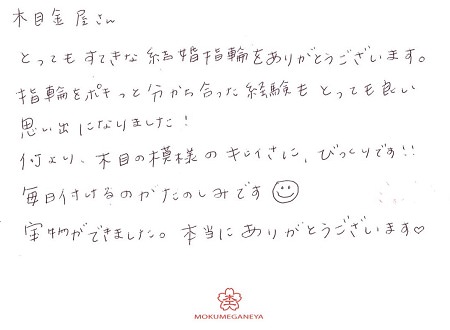 木目金屋さん
とってもすてきな結婚指輪をありがとうございます。
指輪をポキっと分かち合った経験もとっても良い
思い出になりました!
何より、木目の模様のキレイさに、びっくりです!!
毎日付けるのがたのしみです
宝物ができました。本当にありがとうございます♡
MOKUMEGANEYA